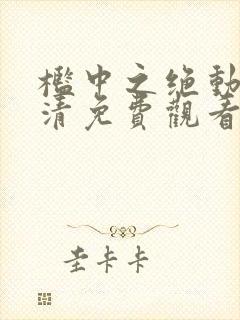 槛中之绝動
清免費觀看
圭卡卡